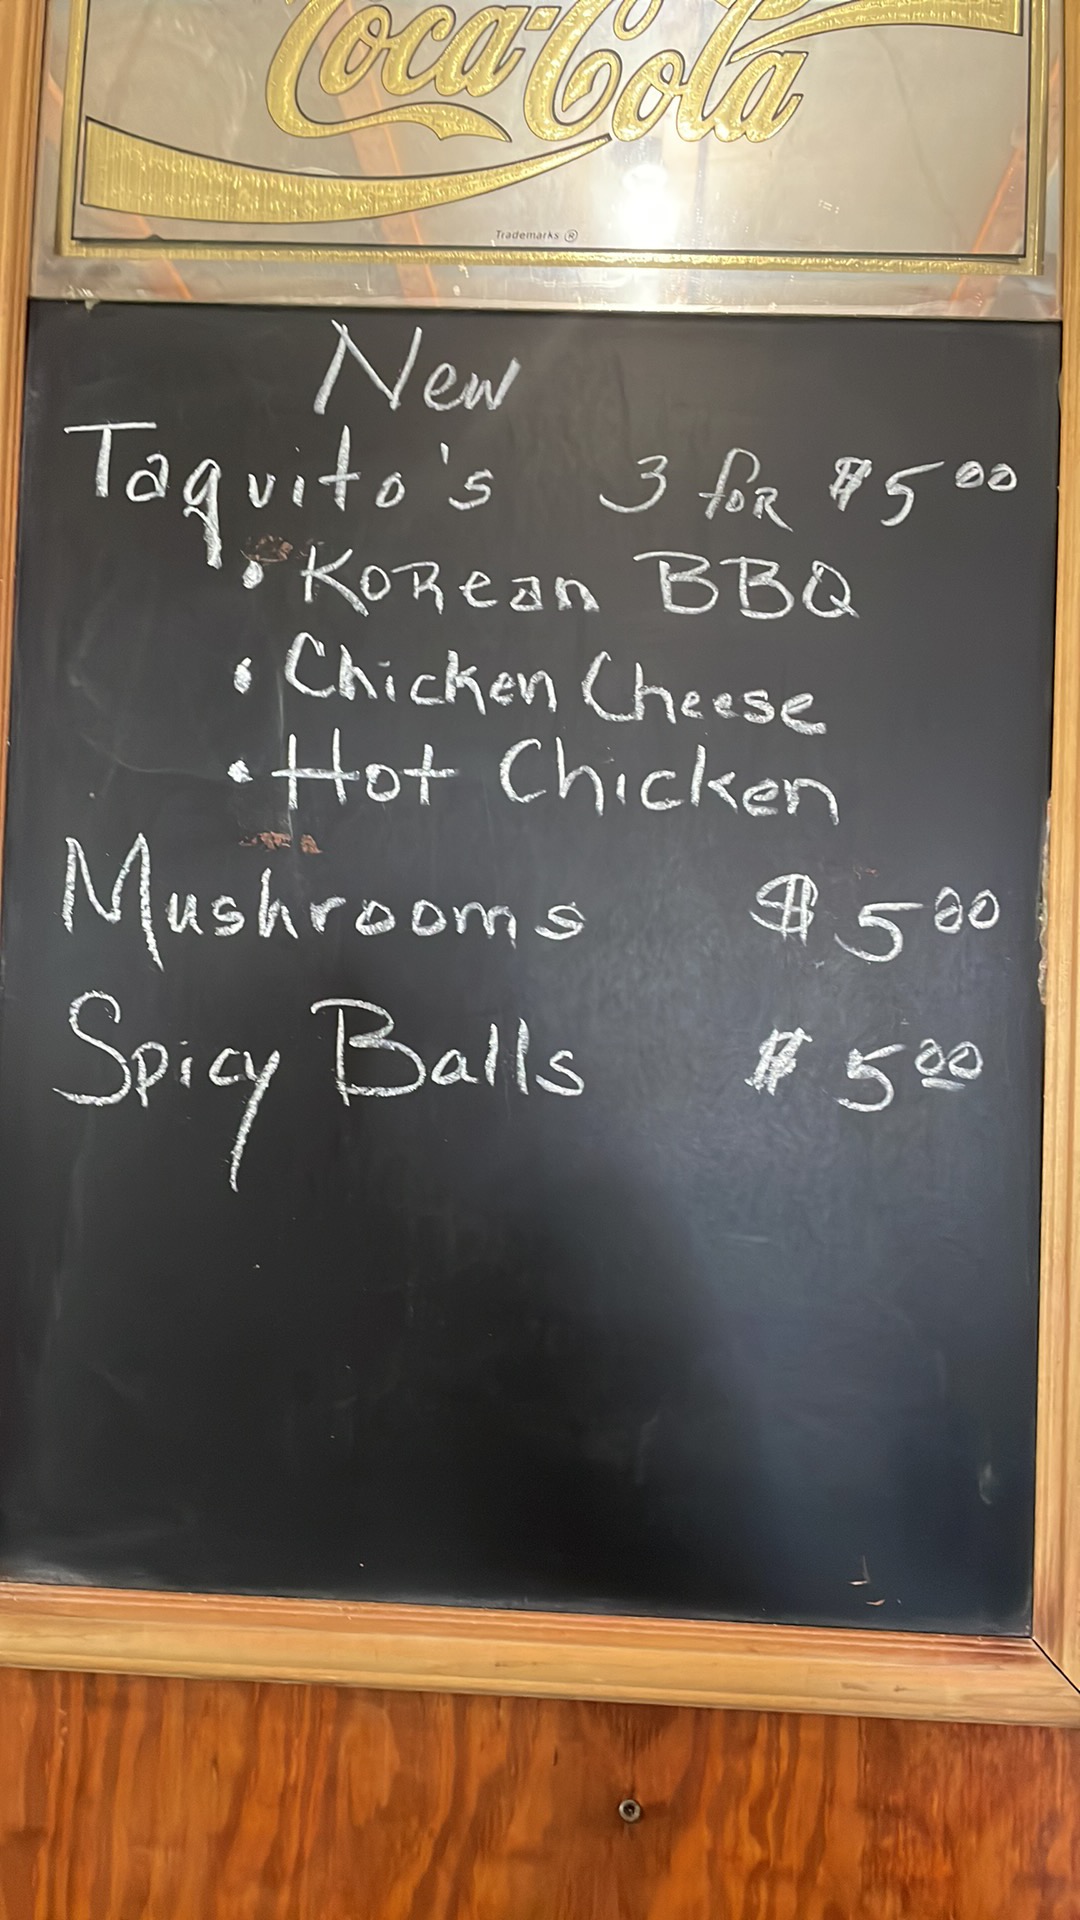 Coca-Cola
Trademarks ®
New
Taquito's 3 for $5.00
• Korean BBQ
• Chicken Cheese
• Hot Chicken
Mushrooms $5.00
Spicy Balls $5.00